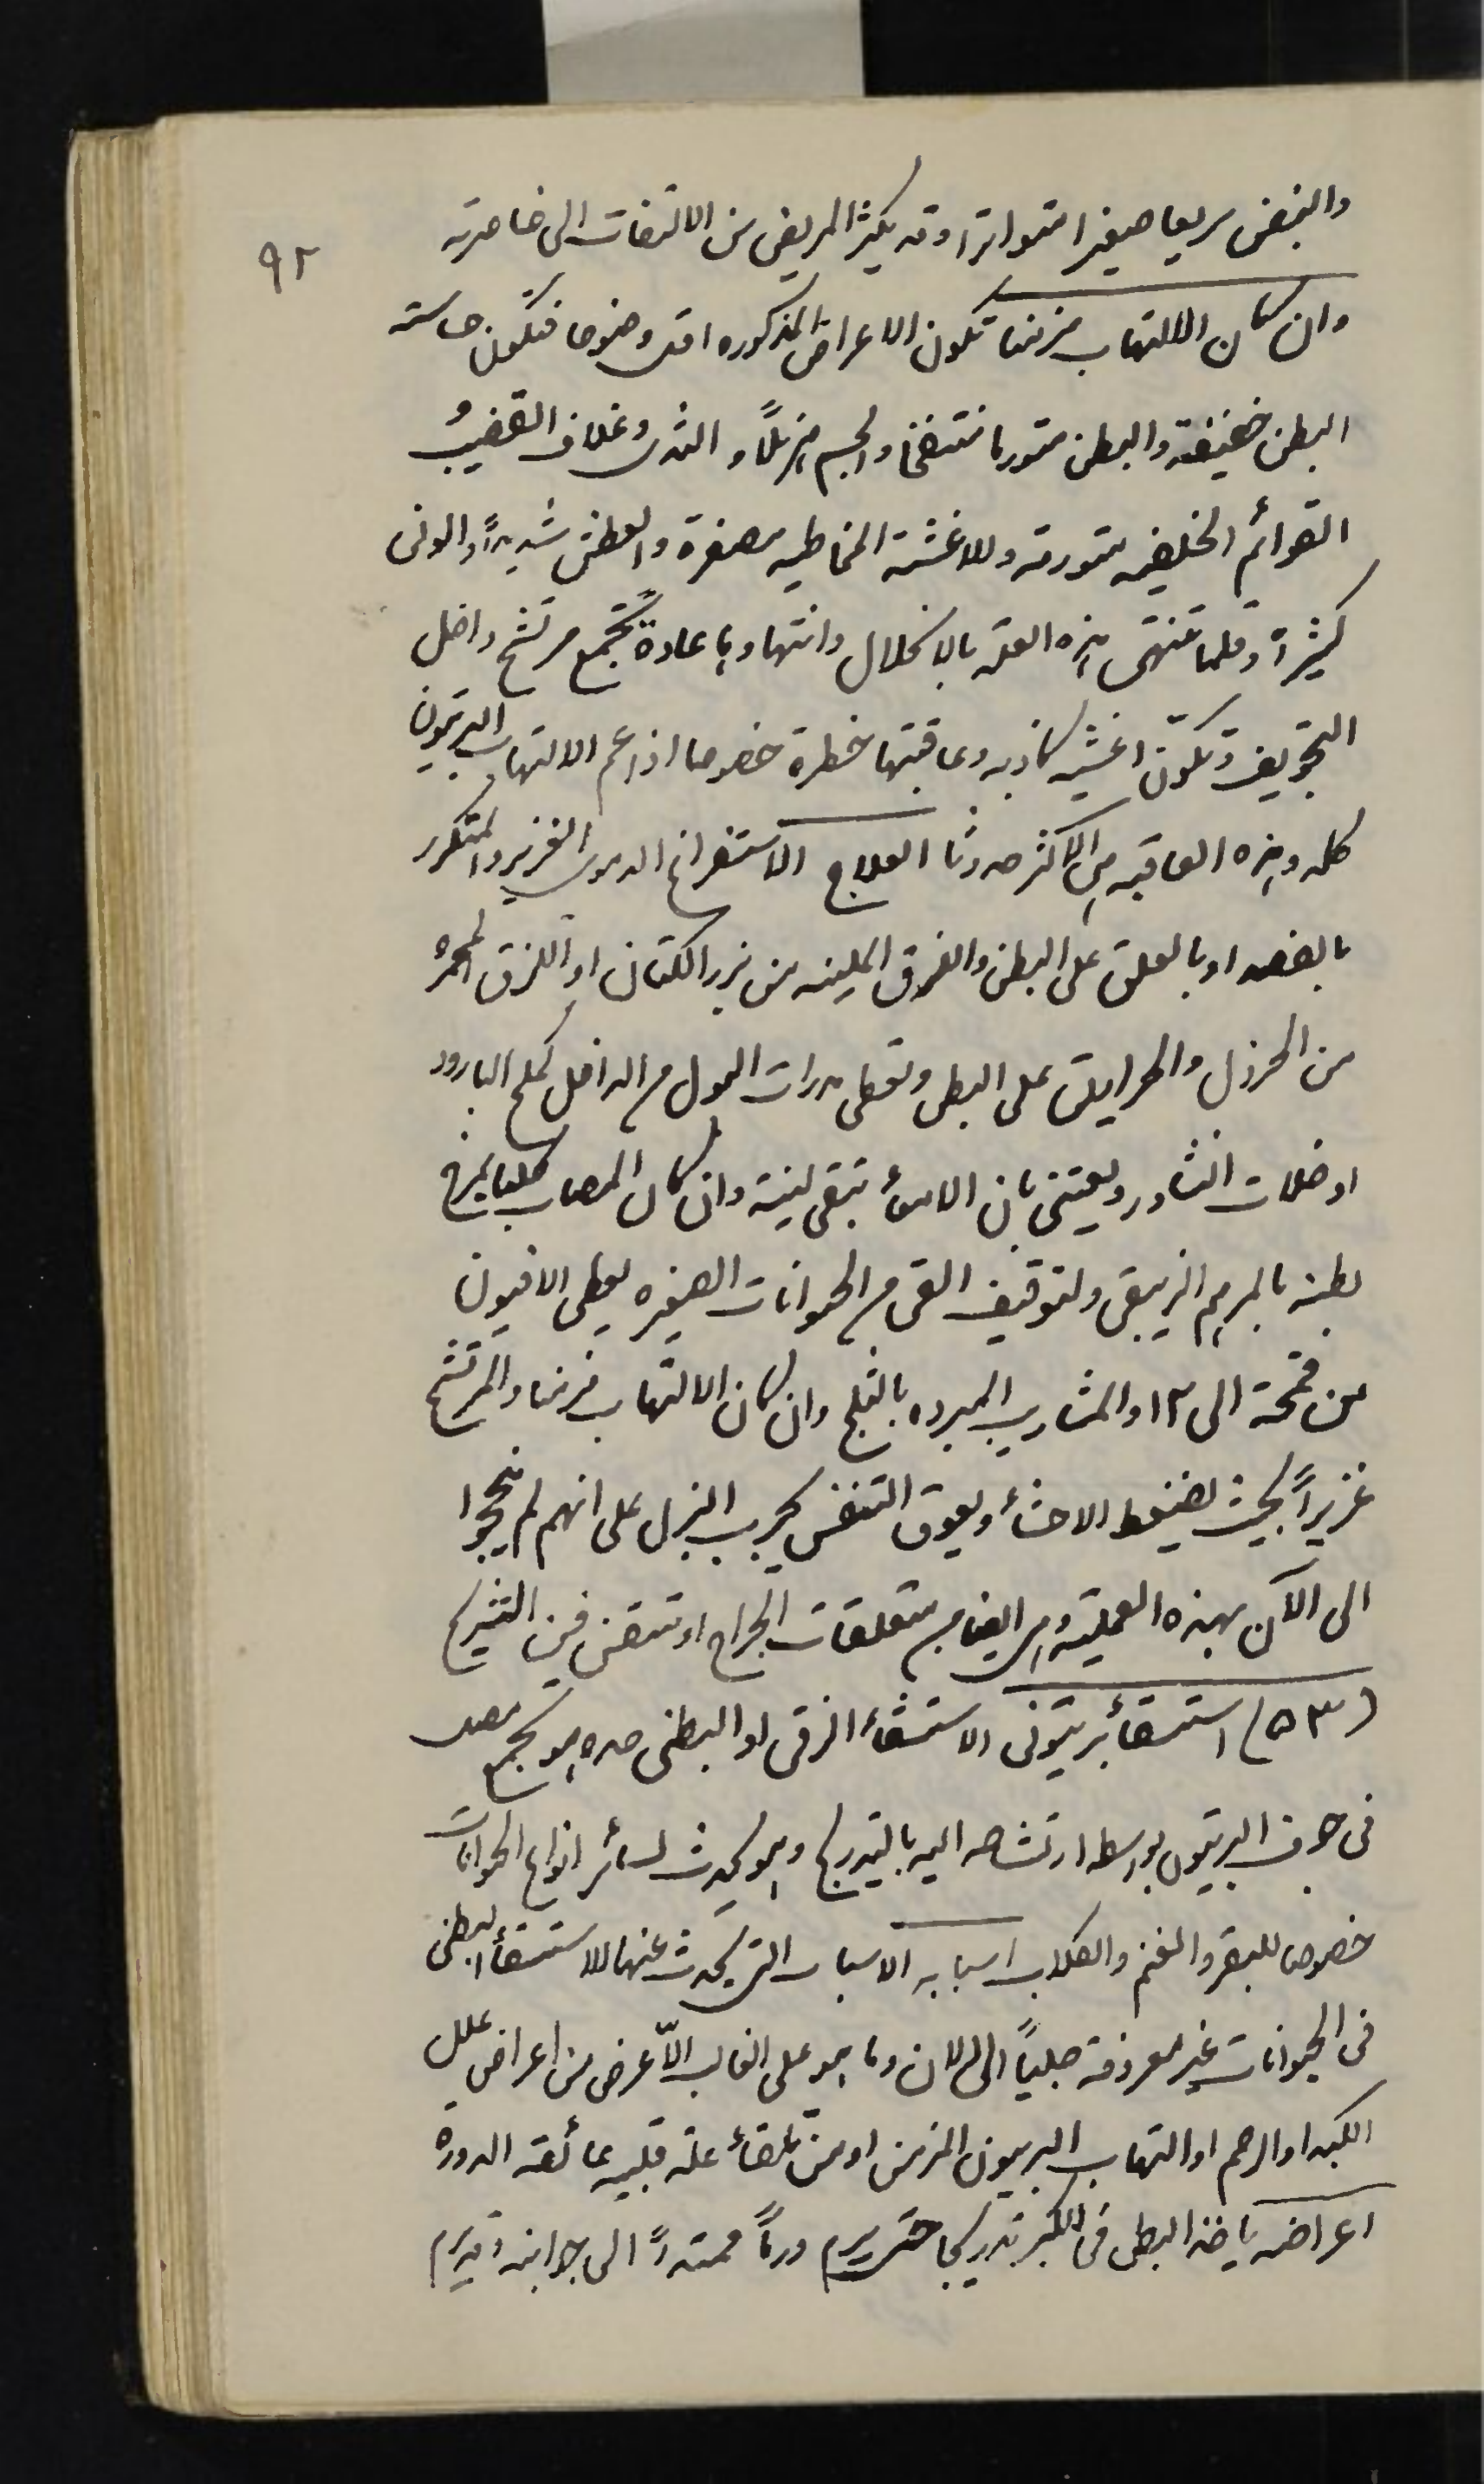 ٩٢
والنبض سريعا صغيرا متواترا وقد يكثر المريض من الالتفات الى خاصرته
وان كان الالتهاب مزمنا تكون الاعراض المذكوره اقل وضوحا فتكون حاسة
البطن خفيفة والبطن متورما منتفخا والجسم هزيلاً والثدى وغلاف القضيب و
القوائم الخلفيه متورمة والاغشية المخاطيه مصفرة والعطش شديداً والونى
كثيراً وقلما تنتهى هذه العلة بالانحلال وانتهاوها عادةً تجمع مرتشح داخل
التجويف وتكوّن اغشيه كاذبه وعاقبتها خطرة خصوصا اذا عم الالتهاب البريتون
كله وهذه العاقبه هى الاكثر حدوثا العلاج الاستفراغ الدموى الغزير والمتكرر
بالفصد او بالعلق على البطن والخرق الملينه من بزر الكتان او اللزق المحمرة
من الخردل والحراريق على البطن وتعطى مدرات البول من الداخل كملح البارود
او خلات النشادر ويعتنى بان الامعاء تبقى لينة وان كان المصاب كلبا يمرخ
بطنه بالمرهم الزيبقى ولتوقيف القى من الحيوانات الصغيره يعطى الافيون
من قمحة الى ٣ او المشاريب المبرده بالثلج وان كان الالتهاب مزمنا والمرتشح
غزيراً بحيث يضغط الاحشاء ويعوق التنفس يجرب البزل على انهم لم ينجحوا
الى الآن بهذه العملية وهى ايضا من متعلقات الجراح او متقن فن التشريح
(٥٣) استسقاء بريتونى الاستسقاء الزقى او البطنى حده هو تجمع مصل
فى جوف البريتون بواسطه ارتشاحه اليه بالتدريج وهو يحدث لسائر انواع الحيوانات
خصوصا للبقر والغنم والكلاب اسبابه الاسباب التى يحدث عنها الاستسقاء البطنى
فى الحيوانات غير معروفة جلياً الى الان وما هو على الغالب الّا عرض من اعراض علل
الكبد او الرحم او التهاب البريتون المزمن او من تلقاء علة قلبيه عائقه الدوره
اعراضه ياخذ البطن فى الكبر تدريجيا حتى يرم ورماً ممتداً الى جوانبه وتهرم